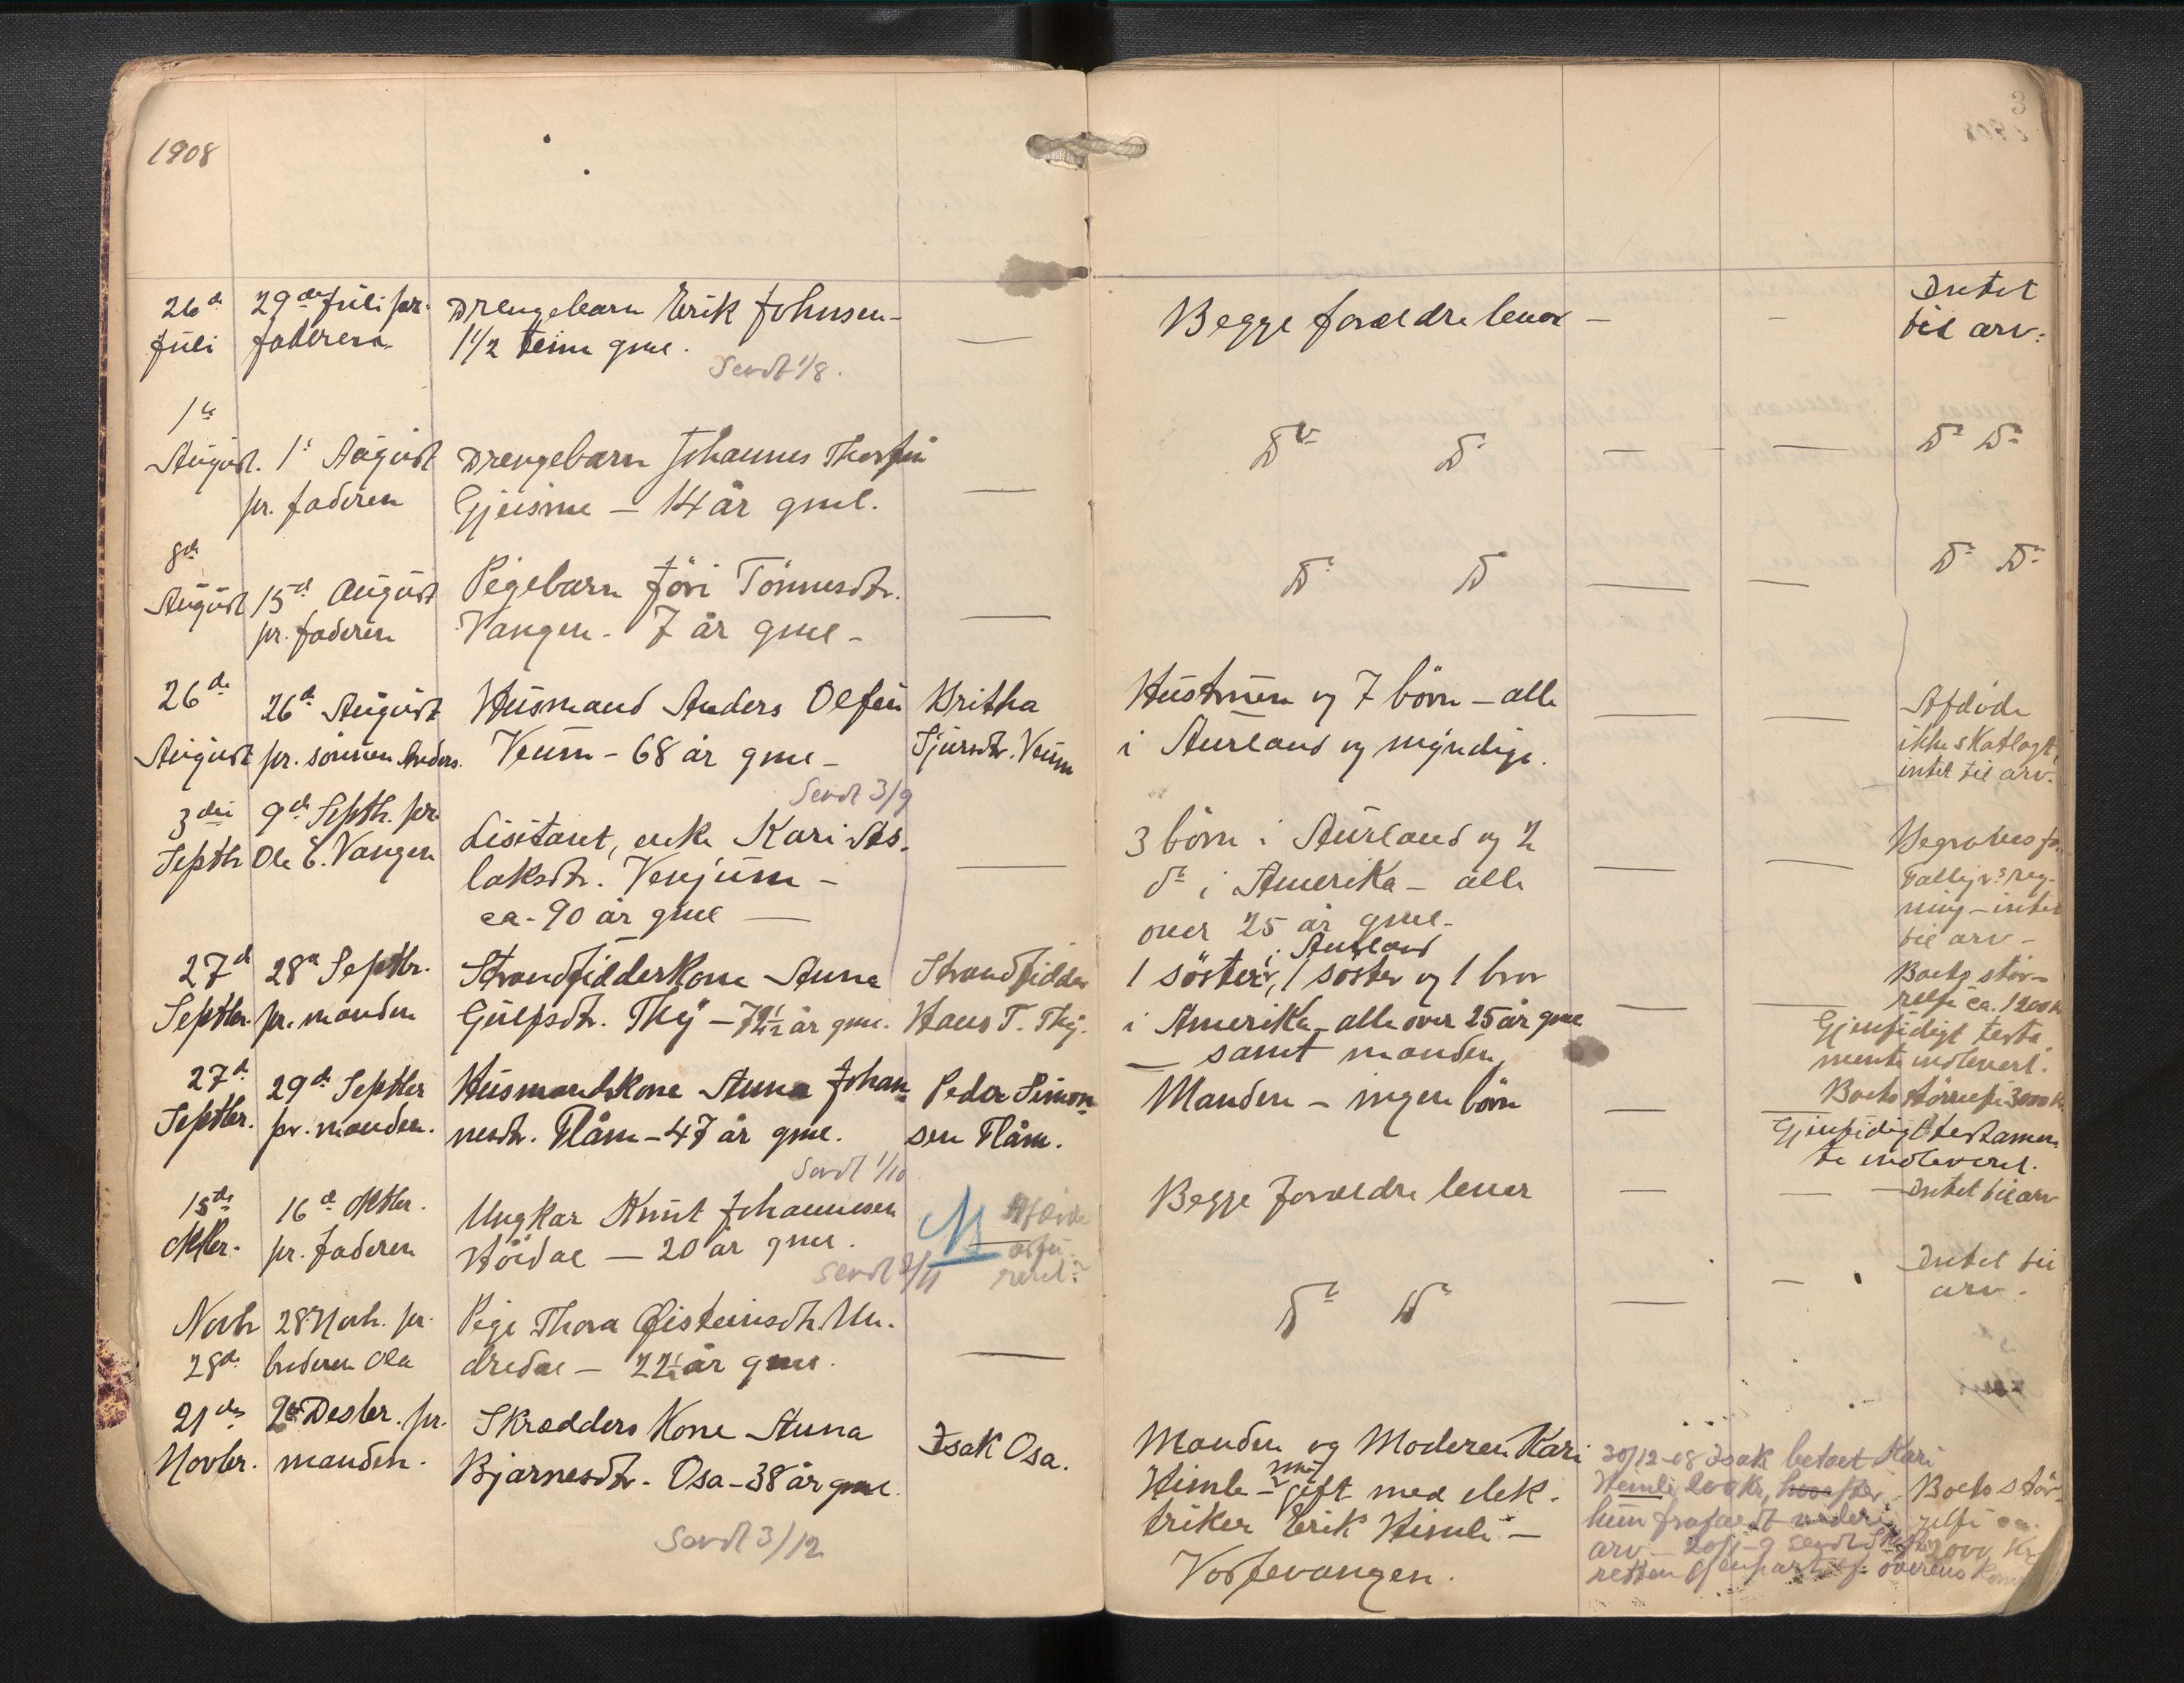 1908
3
26de Juli
29de Juli pr. faderen
Drengebarn Erik Johnsen -
1 1/2 time gml.
Sendt 1/8.
Begge forældre lever —
Intet
til arv.
1ste
August.
1ste August
pr. faderen
Drengebarn Johannes Thorfin
Gjeisme — 14 år gml.
—
Do Do — —
Do Do
8de
August
15de August
pr. faderen
Pigebarn Jöri Tönnesdtr.
Vangen - 7 år gml -
—
Do Do — —
Do Do
26de
August
26de August
pr. sönnen Anders.
Husmand Anders Olsen
Veum - 68 år gml -
Sendt 3/9
Britha
Sjursdtr. Veum
Hustruen og 7 börn - alle
i Aurland og myndige.
Afdöde
ikke skatlagt,
intet til arv.
3die
Septbr
9de Septbr. pr.
Ole E. Vangen
Lisitant, enke Kari As-
laksdtr. Venjum -
ca. 90 år gml —
—
3 börn i Aurland og 2
do i Amerika - alle
over 25 år gml.
Begraves
reg-
ning - intet
til arv -
27de
Septbr.
28de Septbr.
pr. manden
Strandsidderkone Anna
Gulfsdtr. Thy - 72 1/2 år gml.
Strandsidder
Hans T. Thy.
i Aurland
1 söster, 1 söster og 1 bror
i Amerika - alle over 25 år gml
— samt manden
Boets stör-
relse ca. 1200 k
Gjensidigt testa-
mente indleveret.
27de
Septbr.
29de Septbr
pr. manden.
Husmandskone Anna Johan-
nesdtr. Flåm - 47 år gml.
Sendt 1/10
Peder Simon-
sen Flåm.
Manden - ingen börn
Boets störrelse 3000 k
Gjensidigt testamen-
te indleveret.
15de
Oktbr.
16de Oktbr.
pr. faderen
Ungkar Knut Johannesen
Höidal — 20 år gml.
Sendt 2/11
Begge forældre lever
Intet til arv
Novbr
28de
28 Novb. pr.
broderen Ola
Pige Thora Øisteinsdtr. Un-
dredal - 22 1/2 år gml.
—
Do Do
Intet til
arv.
21de
Novbr.
2de Desbr. pr.
manden.
Skrædders kone Anna
Bjarnesdtr. Osa - 38 år gml.
Sendt 3/12
Isak Osa.
Manden og Moderen Kari
Himle - nu gift med elek-
triker Erik Himle -
Vossevangen.
30/12-08 Isak betalt Kari
Himle 200 kr,
hun frafaldt videre
arv - 20/1-9 sendt Skifte-
retten Gjenpart af overenskom
Boets stör-
relse ca.
2000 Kr.